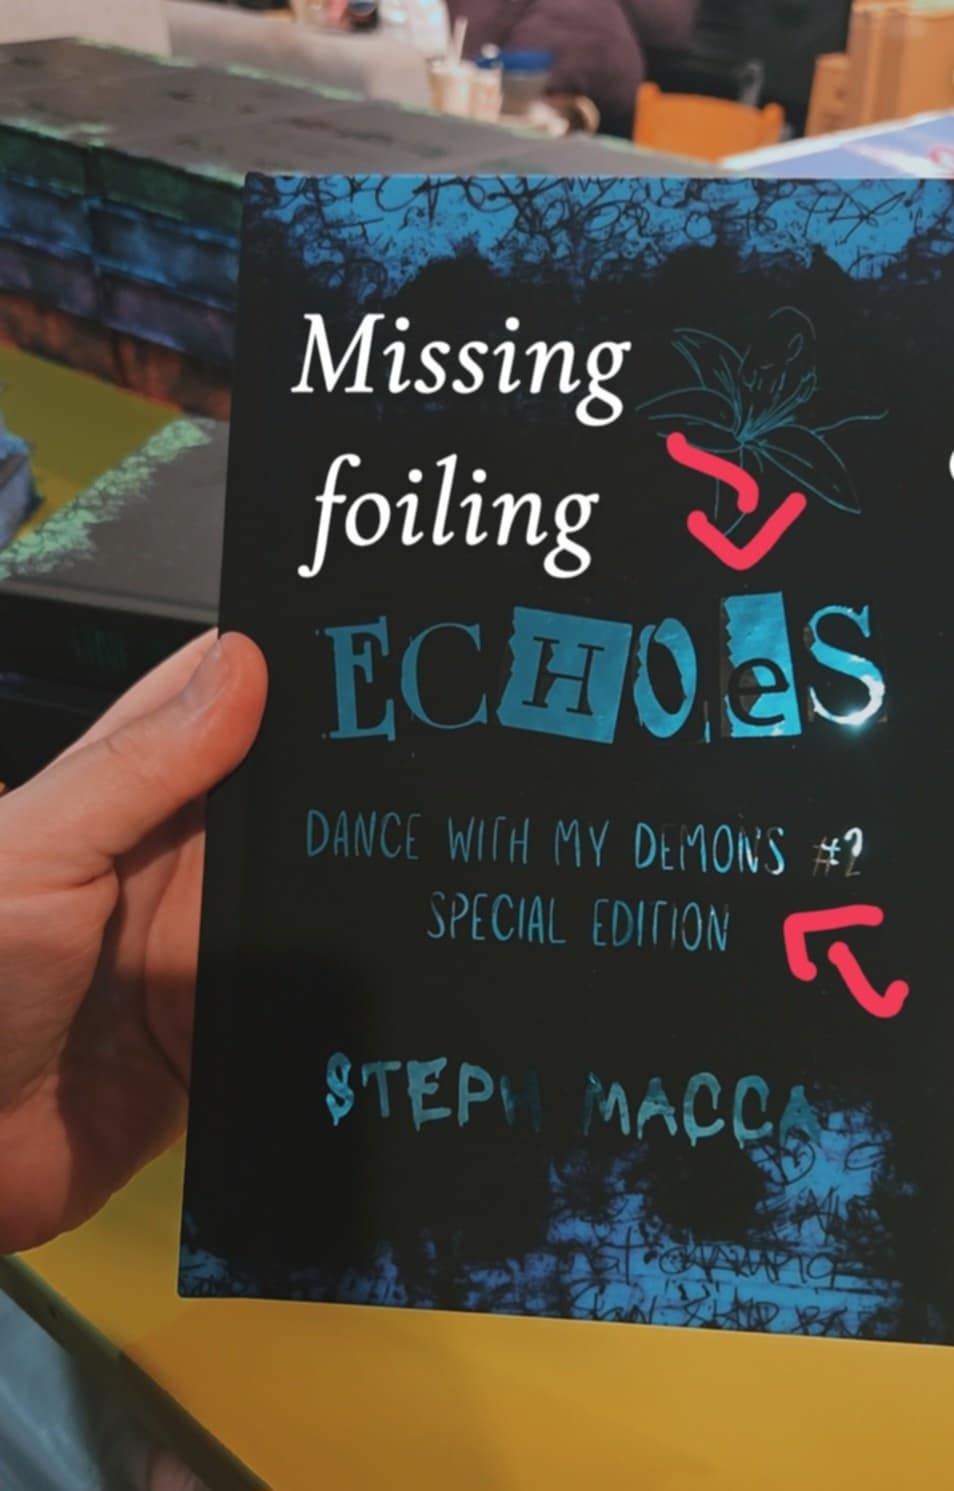 Missing
foiling
ECHOeS
DANCE WITH MY DEMONS #2
SPECIAL EDITION
STEPH MACCA